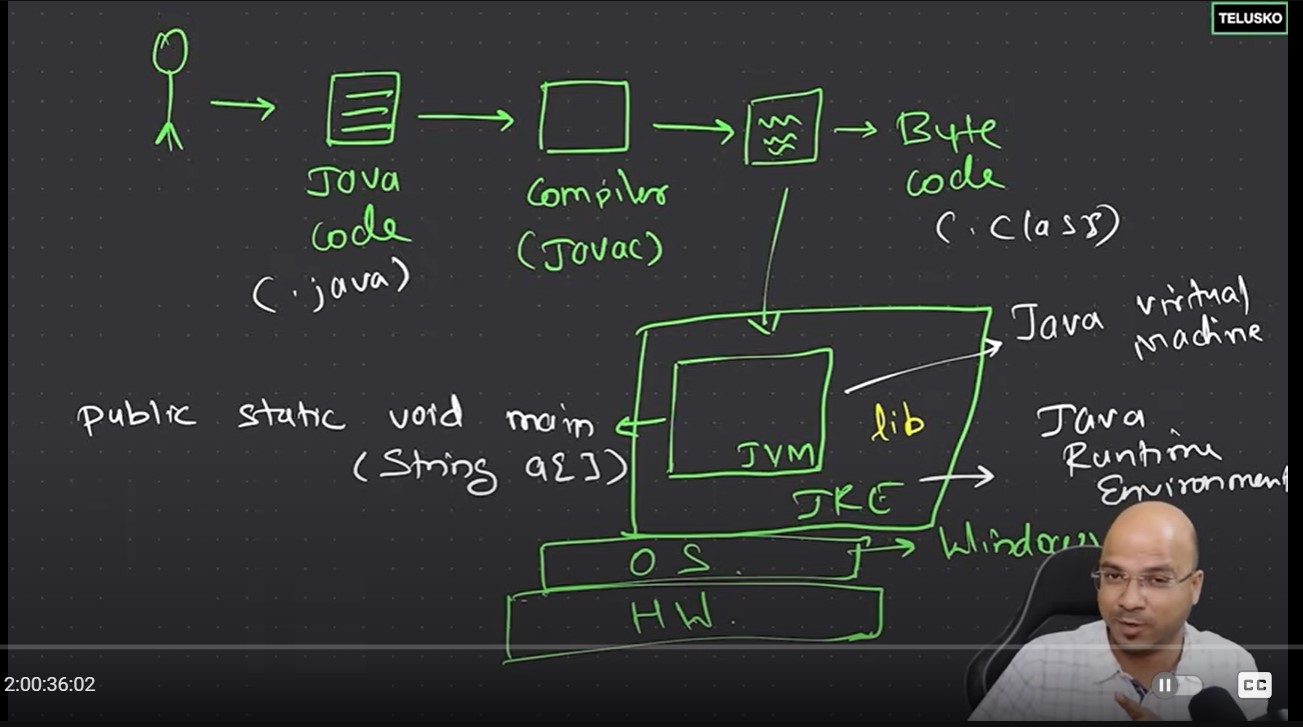 TELUSKO
Java
code
(.java)
Compiler
(Javac)
Byte
code
(.class)
Java virtual
Machine
public static void main
(String a[])
lib
JVM
Java
Runtime
Environment
JRE
OS.
Windows
HW.
2:00:36:02
CC